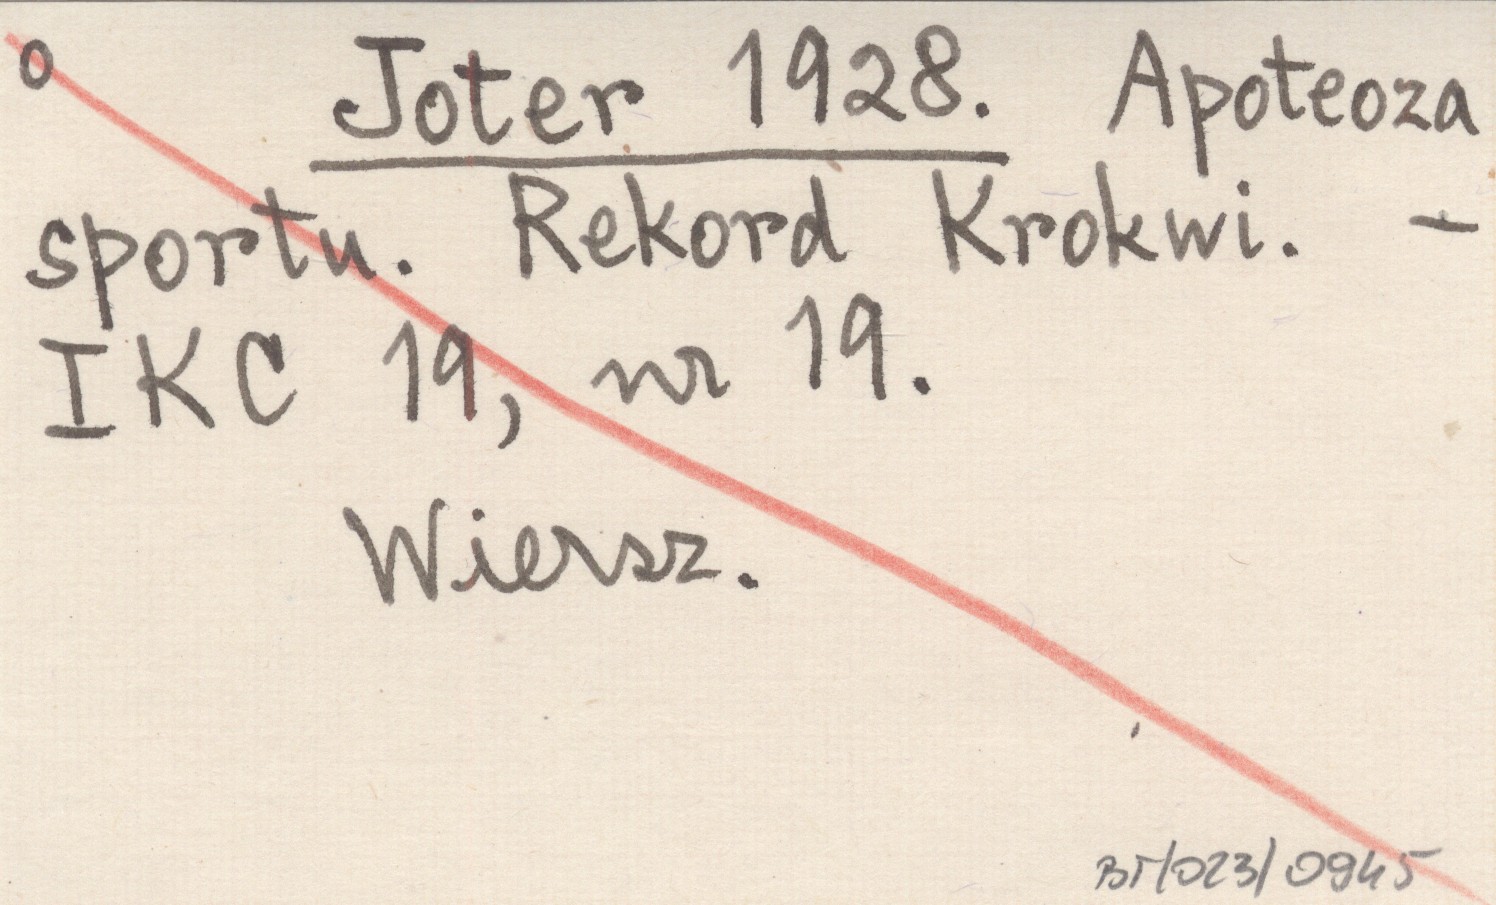 o Joter 1928. Apoteoza
sportu. Rekord Krokwi. -
IKC 19, nr 19.
Wiersz.
BT/023/0945